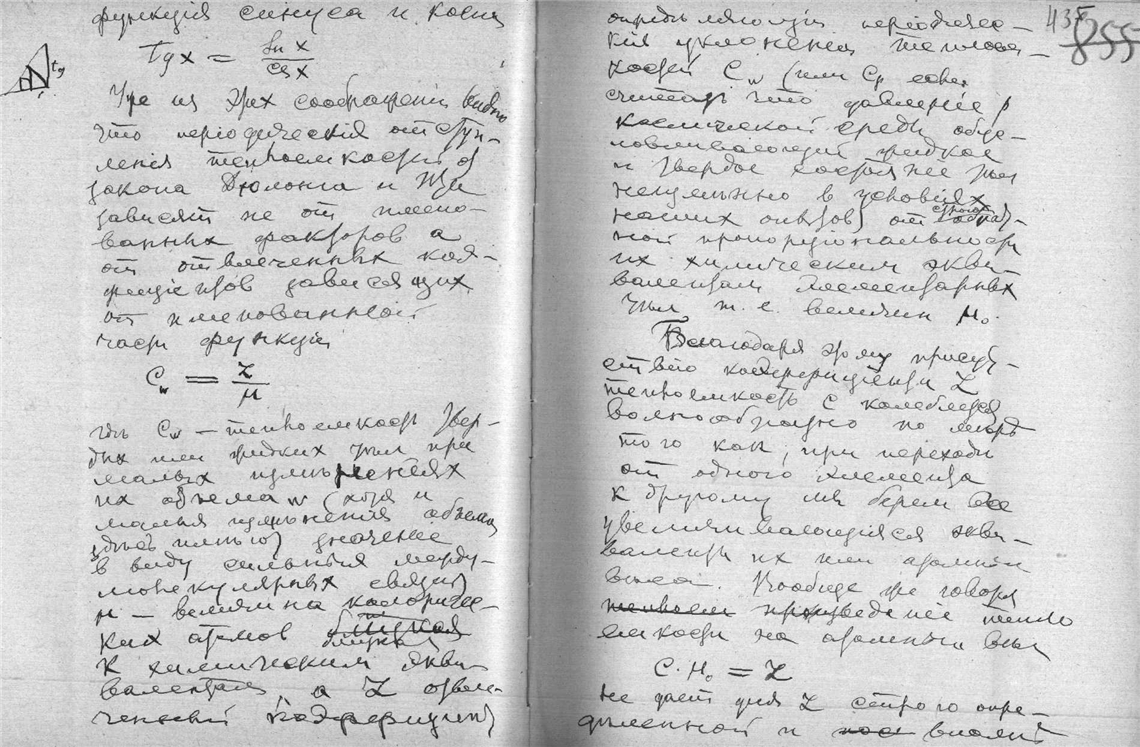 функція синуса и косин
Tg x = Sn x / Cs x
tg
Уже из этих соображеній видно
что періодическія отступ-
ленія теплоемкостей от
закона Дюлонга и Пти
зависят не от имено-
ванных факторов а
от отвлеченных коэ-
фиціентов зависящих
от именованной
части функціи
C_w = Z / μ
гдѣ C_w — теплоемкость твер-
дых или жидких тѣл при
малых измѣненіях
их объема w (хотя и
малыя измѣненія объема
здѣсь имѣют значеніе
в виду сильных между-
молекулярных связей)
μ — величина калориче-
ских атомов близкая
к химическим экви-
валентам, а Z отвле-
ченный коэффиціент
435
855
опредѣляющій періодичес-
кія уклоненія теплоем-
костей C_w (или C_p если
считать что давленіе p
космической среды обус-
ловливающей жидкое
и твердое состояніе тѣл
неизмѣнно в условіях
наших опытов) от строгой обрат-
ной пропорціональности
их химическим экви-
валентам элементарных
тѣл т. е. величин μ₀.
Благодаря этому присут-
ствію коэффиціента Z
теплоемкость C колеблется
волнообразно по мѣрѣ
того как, при переходѣ
от одного элемента
к другому мы берем все
увеличивающіяся экви-
валенты их или атомные
вѣса. Вообще же говоря
теплоем произведеніе тепло
емкости на атомный вѣс
C · H₀ = Z
не дает для Z строго опре-
дѣленной и вполнѣ